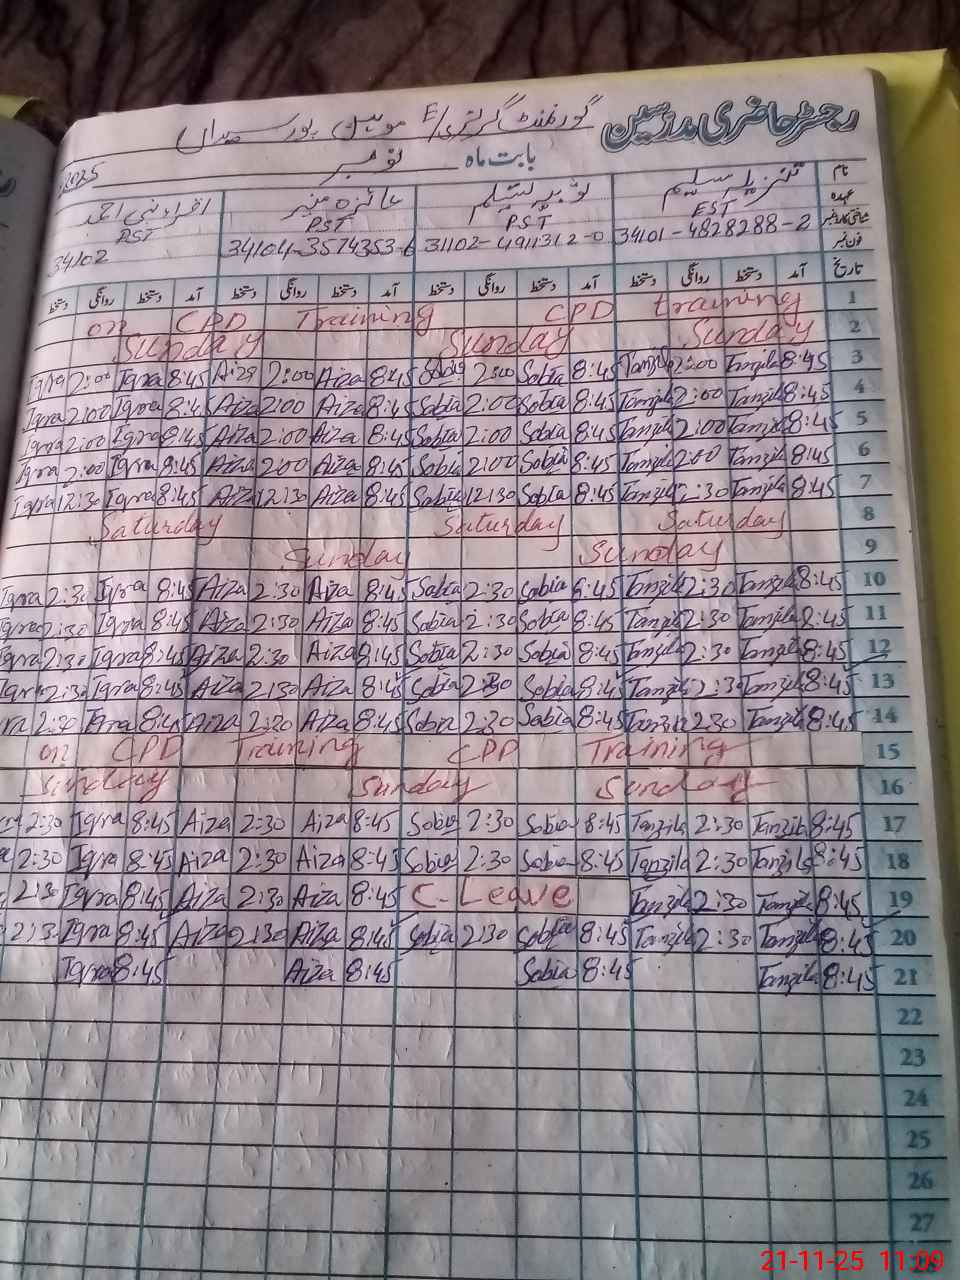 رجسٹر حاضری مدرسین
گورنمنٹ گرلز E/
بابت ماہ نومبر 2025
نام تنزیلہ سلیم ثوبیہ تسلیم عائزہ منیر اقراء نبی احمد
عہدہ EST PST PST PST
شناختی کارڈ نمبر 34101-4828288-2 31102-4911312-0 34104-3574353-6 34102
فون نمبر
تاریخ آمد دستخط روانگی دستخط آمد دستخط روانگی دستخط آمد دستخط روانگی دستخط آمد دستخط روانگی دستخط
on CPD Training CPD training 1
Sunday Sunday Sunday 2
Iqra 2:00 Iqra 8:45 Aiza 2:00 Aiza 8:45 Sobia 2:00 Sobia 8:45 Tanzila 2:00 Tanzila 8:45 3
Iqra 2:00 Iqra 8:45 Aiza 2:00 Aiza 8:45 Sobia 2:00 Sobia 8:45 Tanzila 2:00 Tanzila 8:45 4
Iqra 2:00 Iqra 8:45 Aiza 2:00 Aiza 8:45 Sobia 2:00 Sobia 8:45 Tanzila 2:00 Tanzila 8:45 5
Iqra 2:00 Iqra 8:45 Aiza 2:00 Aiza 8:45 Sobia 2:00 Sobia 8:45 Tanzila 2:00 Tanzila 8:45 6
Iqra 12:30 Iqra 8:45 Aiza 12:30 Aiza 8:45 Sobia 12:30 Sobia 8:45 Tanzila :30 Tanzila 8:45 7
Saturday Saturday Saturday 8
Sunday Sunday 9
Iqra 2:30 Iqra 8:45 Aiza 2:30 Aiza 8:45 Sobia 2:30 Sobia 8:45 Tanzila 2:30 Tanzila 8:45 10
Iqra 2:30 Iqra 8:45 Aiza 2:30 Aiza 8:45 Sobia 2:30 Sobia 8:45 Tanzila 2:30 Tanzila 8:45 11
Iqra 2:30 Iqra 8:45 Aiza 2:30 Aiza 8:45 Sobia 2:30 Sobia 8:45 Tanzila 2:30 Tanzila 8:45 12
Iqra 2:30 Iqra 8:45 Aiza 2:30 Aiza 8:45 Sobia 2:30 Sobia 8:45 Tanzila 2:30 Tanzila 8:45 13
ra 2:30 Iqra 8:45 Aiza 2:30 Aiza 8:45 Sobia 2:30 Sobia 8:45 Tanzila 2:30 Tanzila 8:45 14
on CPD Training CPD Training 15
Sunday Sunday Sunday 16
2:30 Iqra 8:45 Aiza 2:30 Aiza 8:45 Sobia 2:30 Sobia 8:45 Tanzila 2:30 Tanzila 8:45 17
a 2:30 Iqra 8:45 Aiza 2:30 Aiza 8:45 Sobia 2:30 Sobia 8:45 Tanzila 2:30 Tanzila 8:45 18
2:30 Iqra 8:45 Aiza 2:30 Aiza 8:45 C-Leave Tanzila 2:30 Tanzila 8:45 19
2:3 Iqra 8:45 Aiza 2:30 Aiza 8:45 Sobia 2:30 Sobia 8:45 Tanzila 2:30 Tanzila 8:45 20
Iqra 8:45 Aiza 8:45 Sobia 8:45 Tanzila 8:45 21
22
23
24
25
26
27
21-11-25 11:09